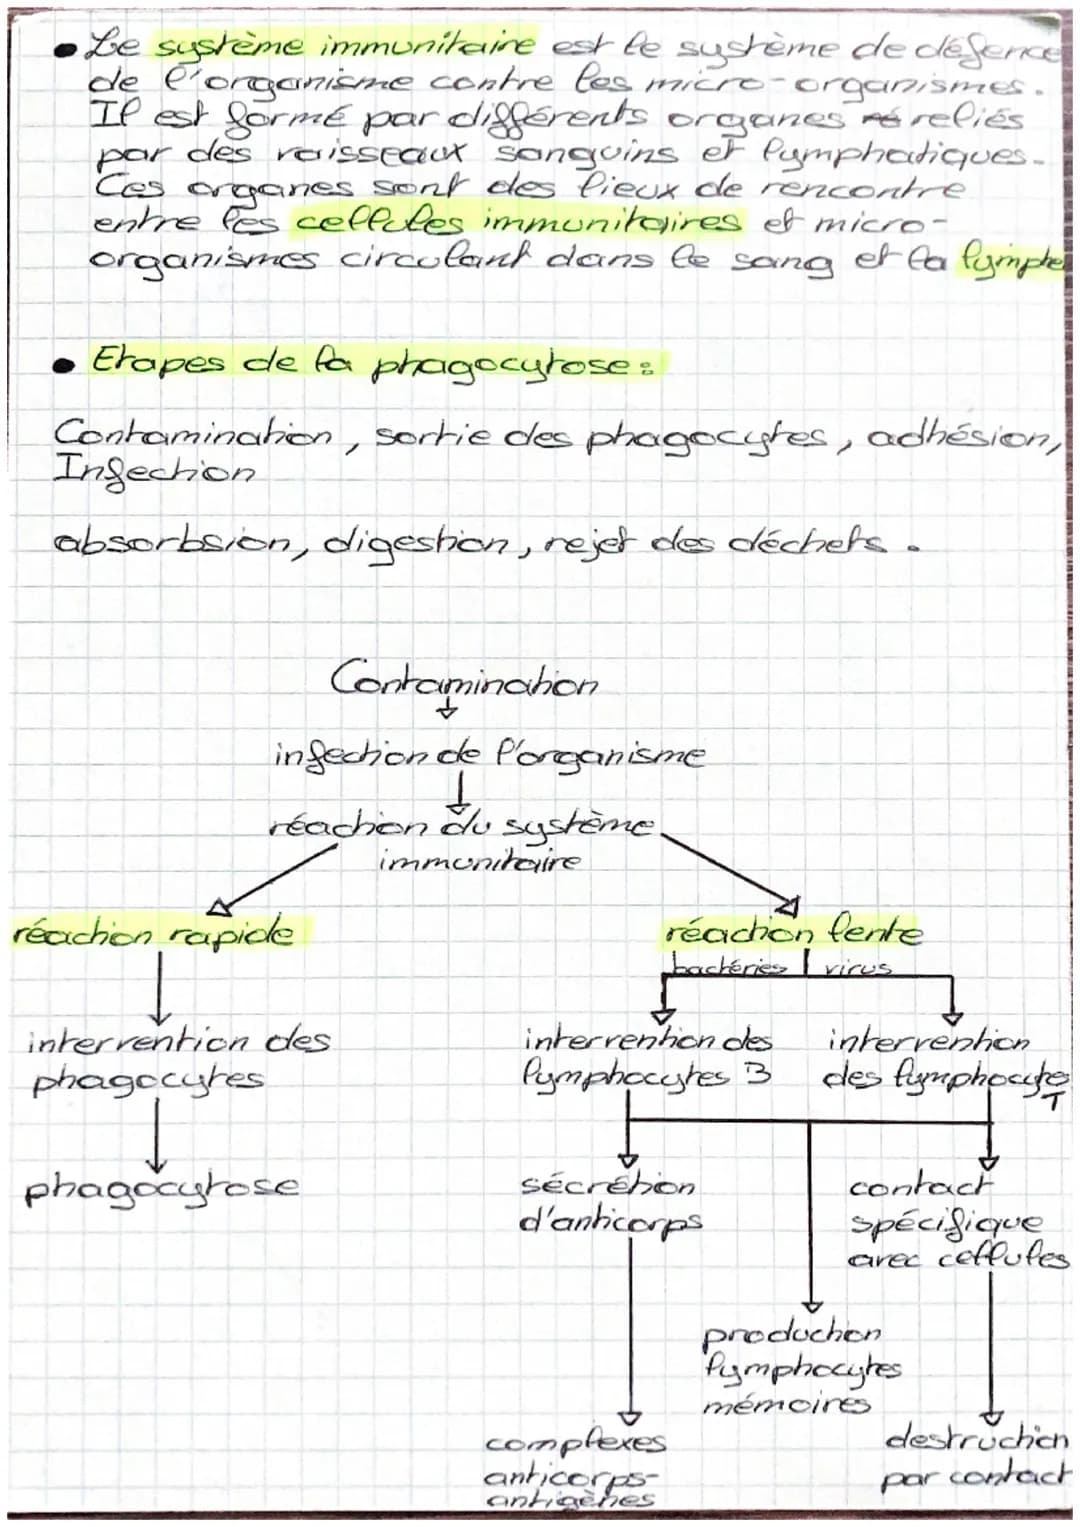 • Le système immunitaire est le système de défence
de l'organisme contre les micro-organismes.
Il est formé par différents organes ré reliés
par des vaisseaux sanguins et lymphatiques.
Ces organes sont des lieux de rencontre
entre les cellules immunitaires et micro-
organismes circulant dans le sang et la lymphe
• Etapes de la phagocytose :
Contamination, sortie des phagocytes, adhésion,
Infection
absorbsion, digestion, rejet des déchets.
Contamination
infection de l'organisme
réaction du système
immunitaire
réaction rapide
réaction lente
bactéries virus
intervention des
phagocytes
intervention des
lymphocytes B
intervention
des lymphocytes
T
phagocytose
sécrétion
d'anticorps
contact
spécifique
avec cellules
production
lymphocytes
mémoires
complexes
anticorps-
antigènes
destruction
par contact